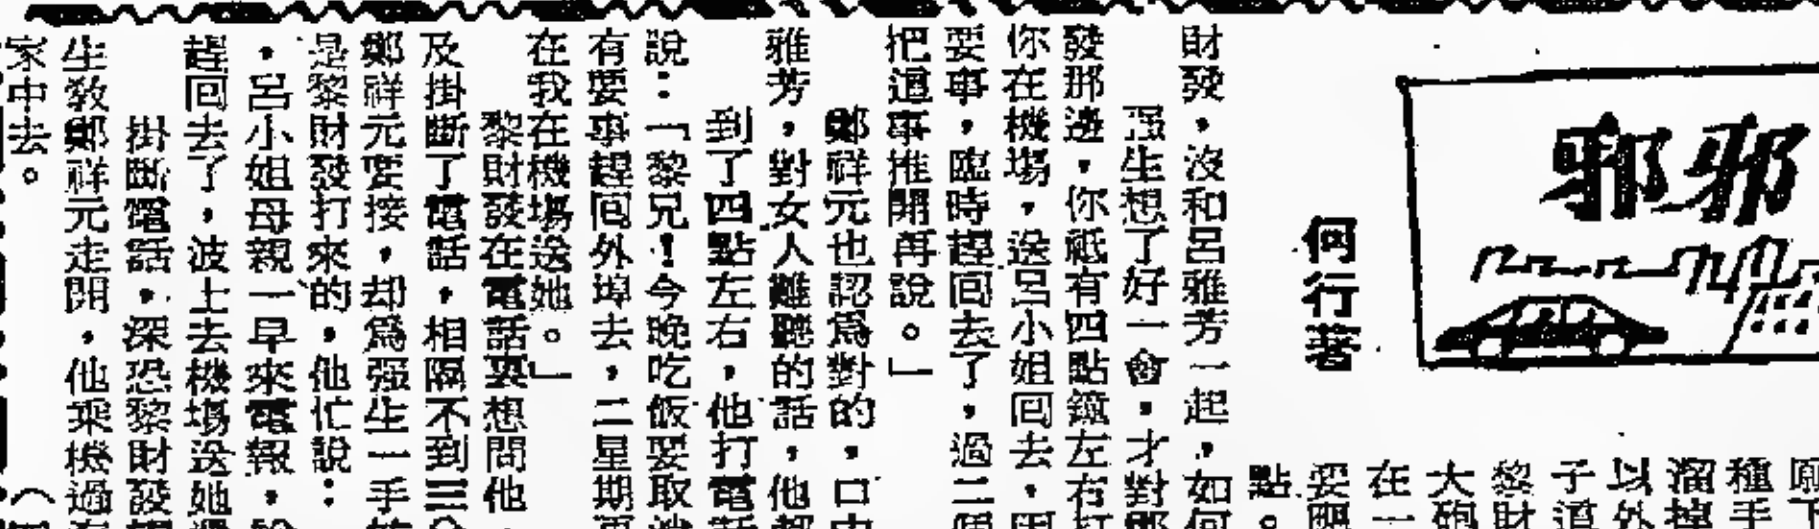 邪邪
何行著
願
種手
溜掉
以外
子道
大砲
黎財
在一
要臨
點。
財發，沒和呂雅芳一起，如何
强生想了好一會，才對鄭
發那邊，你祗有四點鐘左右打
你在機場，送呂小姐回去，因
要事，臨時趕回去了，過二個
把這事推開再說。」
鄭祥元也認爲對的，口中
雅芳，對女人難聽的話，他都
到了四點左右，他打電話
說：「黎兄！今晚吃飯要取消
有要事趕回外埠去，二星期再
在我在機場送她。」
黎財發在電話裏想問他，
及掛斷了電話，相隔不到三分
鄭祥元要接，却爲强生一手
是黎財發打來的，他忙說：
，呂小姐母親一早來電報，說
趕回去了，波士去機場送她還
掛斷電話，深恐黎財發調
生教鄭祥元走開，他乘機過海
家中去。（四